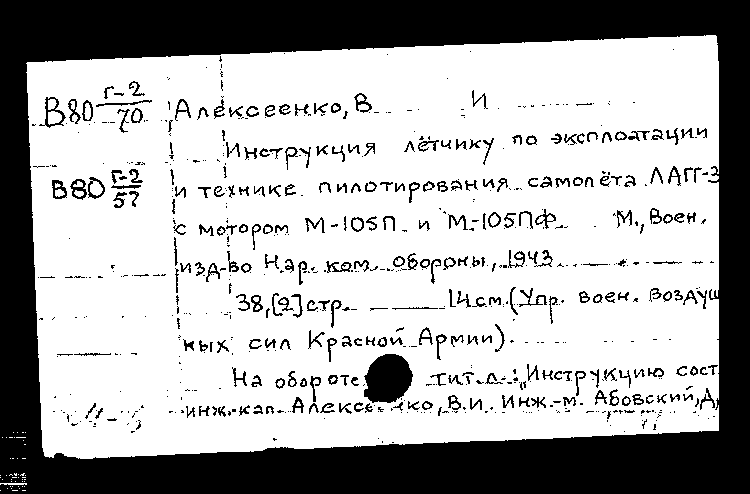 В80 Г-2/70 Алексеенко, В И
Инструкция лётчику по эксплоатации
В80 Г-2/57 и технике пилотирования самолёта ЛАГГ-3
с мотором М-105П и М-105ПФ М., Воен.
изд-во Нар. ком. обороны, 1943
38,[2]стр. 14см.(Упр. воен. воздуш
ных сил Красной Армии).
На обороте тит.л.: „Инструкцию сост
инж.-кап. Алексеенко, В.И. Инж.-м. Абовский, Д.